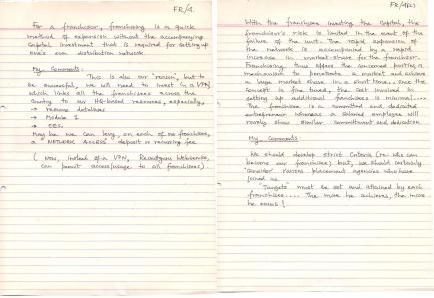 FR/1.
For a franchisor, franchising is a quick
method of expansion without the accompanying
Capital investment that is required for setting up
one's own distribution network
My Comments:
This is also our 'reason', but to
be successful, we will need to invest in a VPN
which links all the franchisees across the
Country to our HO-based resources, especially,
→ resume database
→ Module 1
→ EES.
May be we can levy, on each of our franchisees,
a "NETWORK ACCESS" deposit or recurring fee.
( Now, instead of a VPN, Recruitguru Webservice,
can permit access/usage to all franchisees).
FR/1(2)
With the franchisee investing the Capital, the
franchisor's risk is limited in the event of the
failure of the unit. The rapid expansion of
the network is accompanied by a rapid
increase in market-share for the franchisor.
Franchising thus offers the concerned parties a
mechanism to penetrate a market and achieve
a large market share in a short time. Once the
Concept is fine tuned, the Cost involved in
setting up additional franchisees is minimal....
The franchisee is a committed and dedicated
entrepreneur whereas a salaried employee will
rarely show similar committment and dedication.
My Comments:
We should develop strict Criteria (re: who can
become our franchisee) but, we should seriously
consider various placement agencies who have
joined us.
"Targets" must be set and attained by each
franchisee.... The more he achieves, the more
he earns!